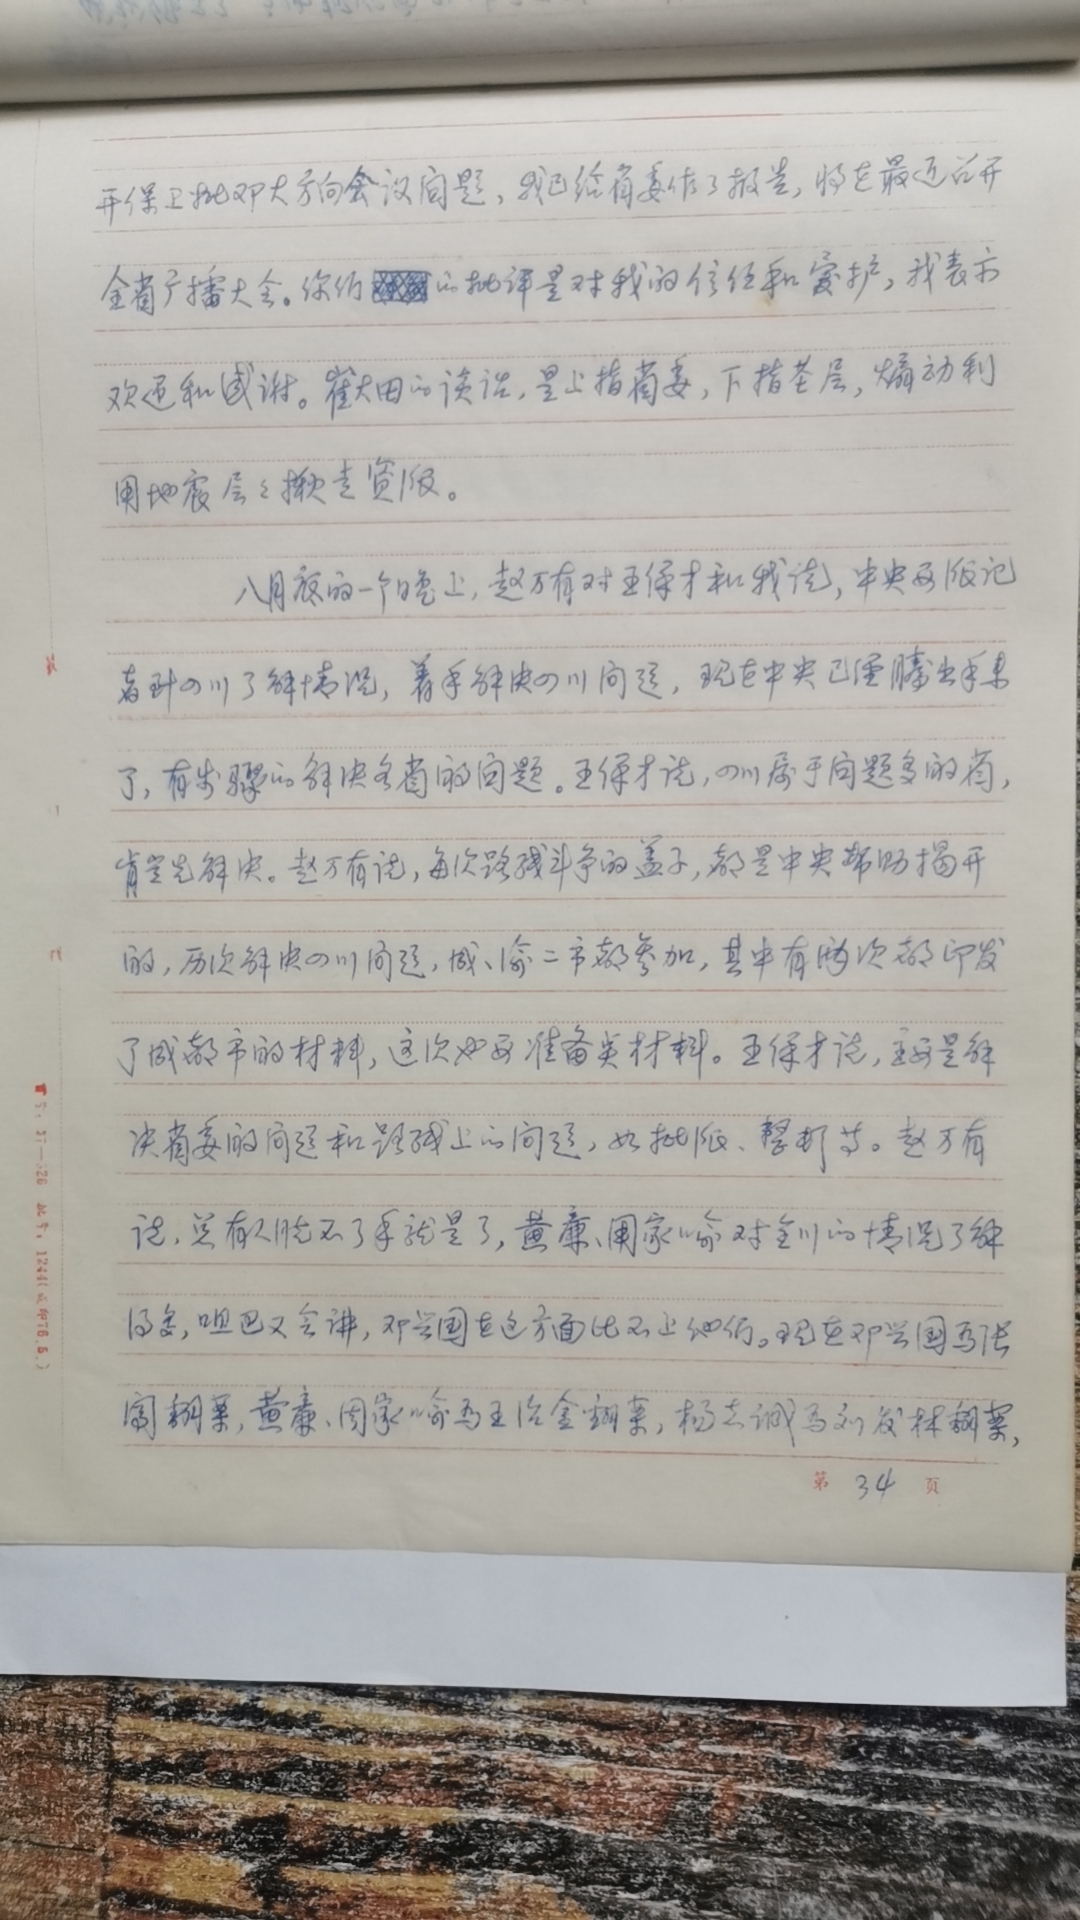 开保卫批邓大方向会议问题，我已给省委作了报告，将在最近召开
全省广播大会。你们的批评是对我的信任和爱护，我表示
欢迎和感谢。崔大田的谈话，是上指省委，下指基层，煽动利
用地震层层揪走资派。
八月底的一个晚上，赵万有对王保才和我说，中央要派记
者到四川了解情况，着手解决四川问题，现在中央已经腾出手来
了，有步骤的解决各省的问题。王保才说，四川属于问题多的省，
肯定先解决。赵万有说，每次路线斗争的盖子，都是中央帮助揭开
的，历次解决四川问题，成、渝二市都参加，其中有两次都印发
了成都市的材料，这次也要准备些材料。王保才说，主要是解
决省委的问题和路线上的问题，如批派、整邦等。赵万有
说，总有人脱不了手就是了，黄廉、周家喻对全川的情况了解
得多，咀巴又会讲，邓兴国在这方面比不上他们。现在邓兴国与张
闹翻案，黄廉、周家喻与王冶金翻案，杨志诚与刘发林翻案，
第 34 页